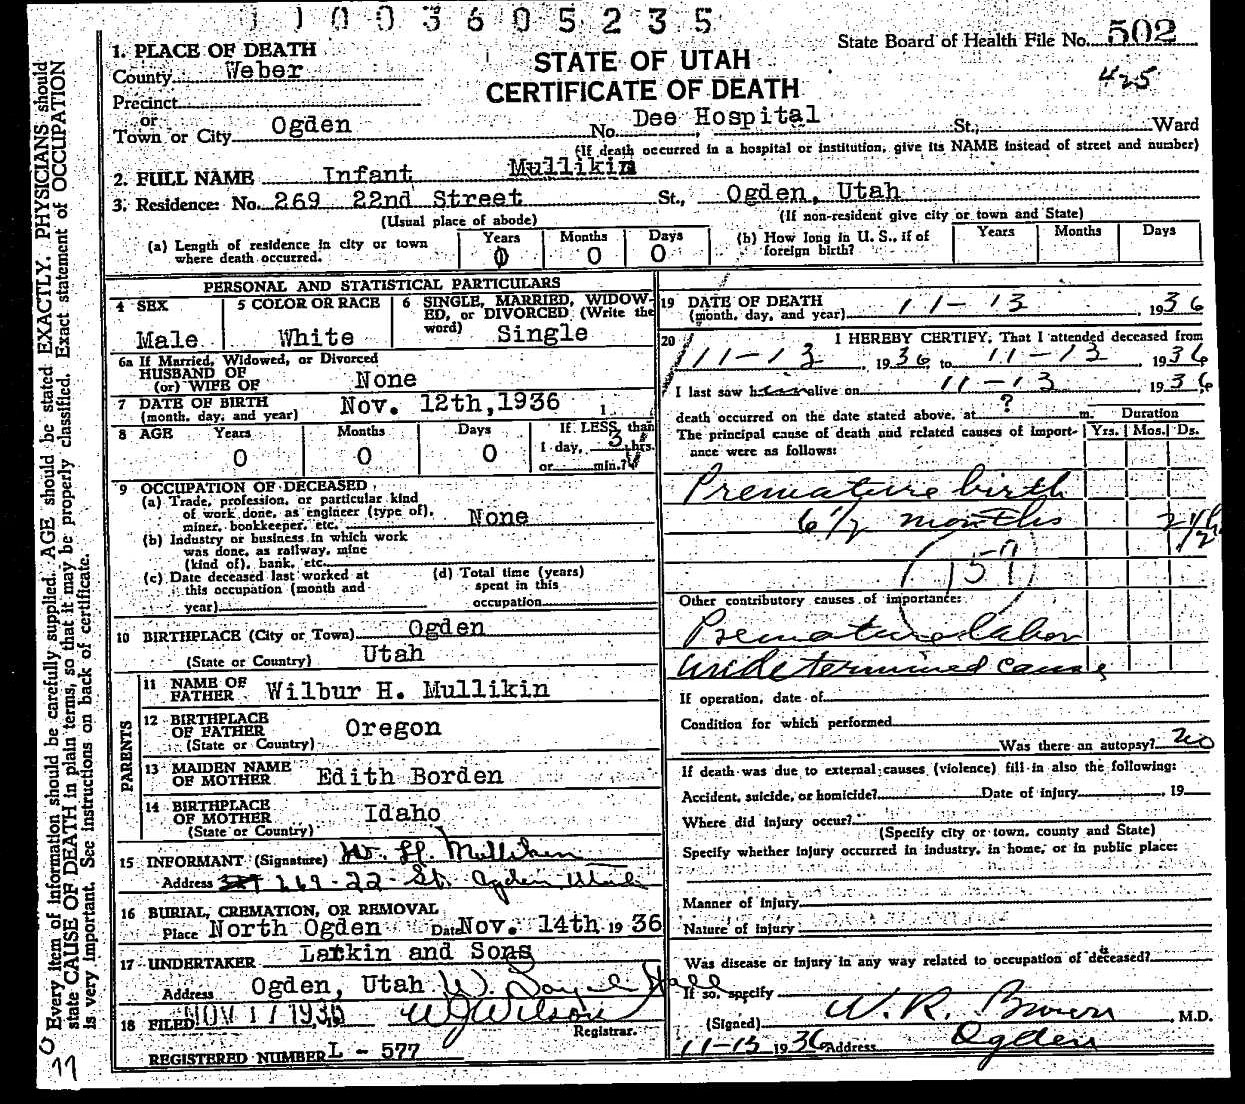 1003605235
State Board of Health File No. 502
425
STATE OF UTAH
CERTIFICATE OF DEATH
1. PLACE OF DEATH
County Weber
Precinct
or
Town or City Ogden No. Dee Hospital St., Ward
(If death occurred in a hospital or institution, give its NAME instead of street and number)
2. FULL NAME Infant Mullikin
3. Residence: No. 269 22nd Street St., Ogden, Utah
(Usual place of abode) (If non-resident give city or town and State)
(a) Length of residence in city or town where death occurred. Years 0 Months 0 Days 0
(b) How long in U. S., if of foreign birth? Years Months Days
PERSONAL AND STATISTICAL PARTICULARS
4 SEX Male
5 COLOR OR RACE White
6 SINGLE, MARRIED, WIDOWED, or DIVORCED (Write the word) Single
6a If Married, Widowed, or Divorced
HUSBAND OF
(or) WIFE OF None
7 DATE OF BIRTH
(month, day, and year) Nov. 12th, 1936
8 AGE Years 0 Months 0 Days 0
If LESS than
1 day, 3 hrs.
or min.?
9 OCCUPATION OF DECEASED
(a) Trade, profession, or particular kind
of work done, as engineer (type of),
miner, bookkeeper, etc. None
(b) Industry or business in which work
was done, as railway, mine
(kind of), bank, etc.
(c) Date deceased last worked at
this occupation (month and
year)
(d) Total time (years)
spent in this
occupation
10 BIRTHPLACE (City or Town) Ogden
(State or Country) Utah
PARENTS
11 NAME OF
FATHER Wilbur H. Mullikin
12 BIRTHPLACE
OF FATHER Oregon
(State or Country)
13 MAIDEN NAME
OF MOTHER Edith Borden
14 BIRTHPLACE
OF MOTHER Idaho
(State or Country)
15 INFORMANT (Signature) W. H. Mullikin
Address 269-22-St. Ogden Utah
16 BURIAL, CREMATION, OR REMOVAL
Place North Ogden Date Nov. 14th 1936
17 UNDERTAKER Larkin and Sons
Address Ogden, Utah W. Hall
18 FILED NOV 17 1936 W J Wilson
Registrar.
REGISTERED NUMBER L - 577
19 DATE OF DEATH
(month, day, and year) 11-13, 1936
20 I HEREBY CERTIFY, That I attended deceased from
11-13, 1936 to 11-13, 1936
I last saw him alive on 11-13 1936
death occurred on the date stated above, at ? m.
Duration
The principal cause of death and related causes of importance were as follows: Yrs. Mos. Ds.
Premature birth
6 1/2 months
(157)
Other contributory causes of importance:
Premature labor
undetermined cause
If operation, date of
Condition for which performed
Was there an autopsy? no
If death was due to external causes (violence) fill in also the following:
Accident, suicide, or homicide? Date of injury , 19
Where did injury occur?
(Specify city or town, county and State)
Specify whether injury occurred in industry, in home, or in public place:
Manner of injury
Nature of injury
Was disease or injury in any way related to occupation of deceased?
If so, specify
(Signed) W. R. Brown, M.D.
11-15 1936 Address Ogden
Every item of information should be carefully supplied. AGE should be stated EXACTLY. PHYSICIANS should
state CAUSE OF DEATH in plain terms, so that it may be properly classified. Exact statement of OCCUPATION
is very important. See instructions on back of certificate.